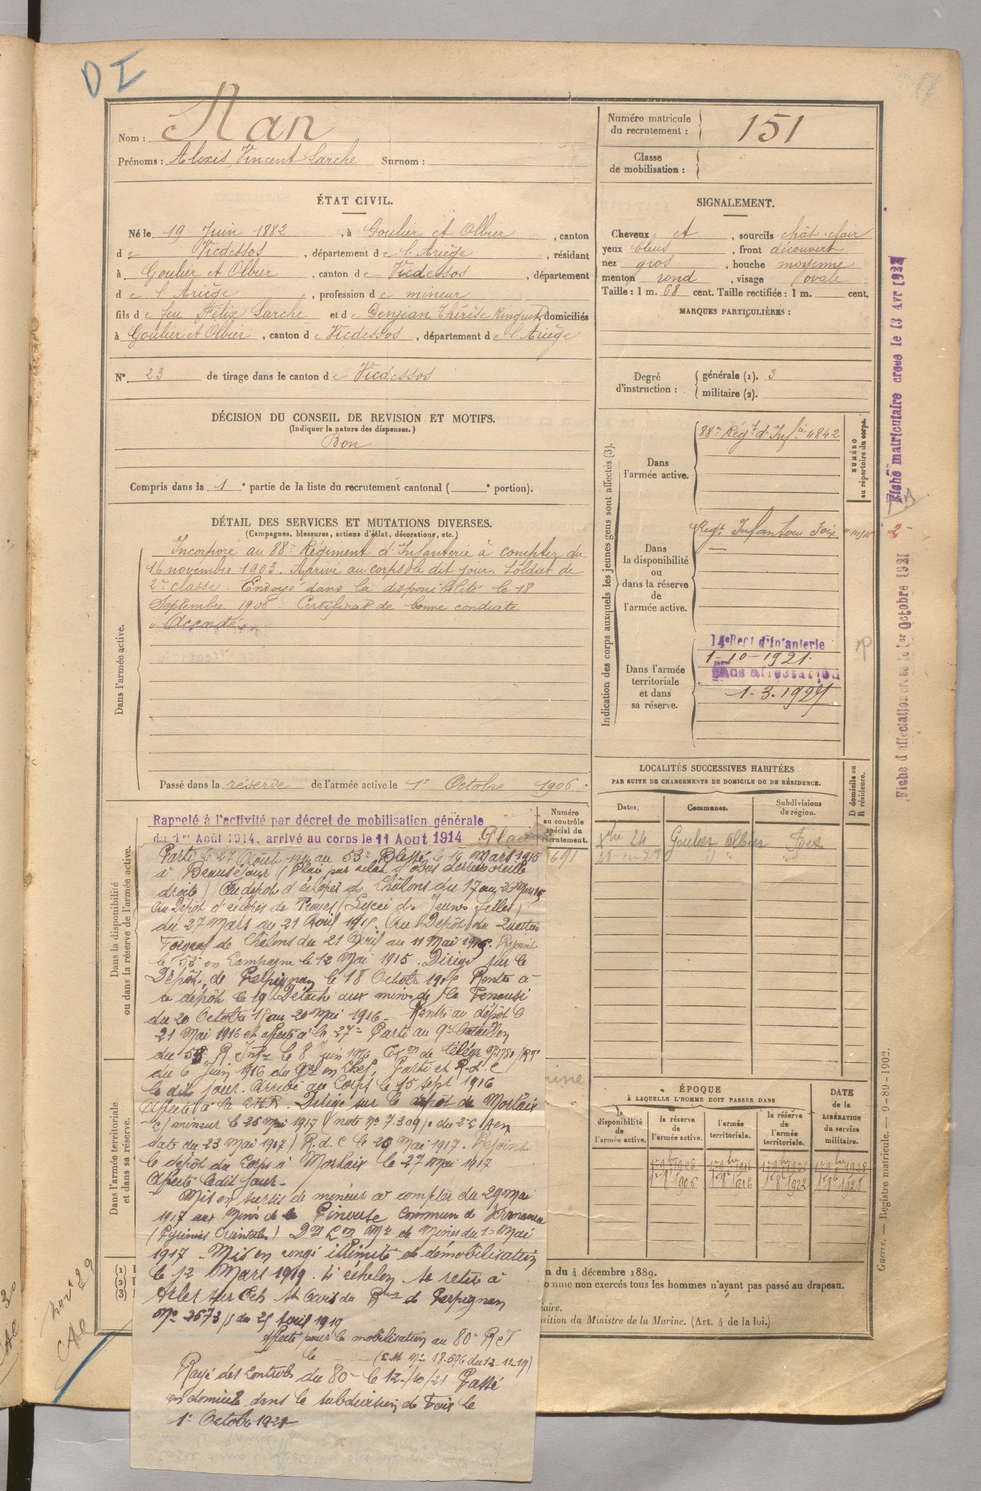 D I
Nom :
Prénoms : Alexis Vincent Larche Surnom :
Numéro matricule
du recrutement : 151
Classe
de mobilisation :
ÉTAT CIVIL.
Né le 19 Juin 1882, à Goulier et Olbier, canton
de Vicdessos, département de l'Ariège, résidant
à Goulier et Olbier, canton de Vicdessos, département
de l'Ariège, profession de mineur
fils de feu Félix Larche et de Thérèse domiciliés
à Goulier et Olbier, canton de Vicdessos, département de l'Ariège
N° 23 de tirage dans le canton de Vicdessos
DÉCISION DU CONSEIL DE REVISION ET MOTIFS.
(Indiquer la nature des dispenses.)
Bon
Compris dans la 1e partie de la liste du recrutement cantonal ( e portion).
DÉTAIL DES SERVICES ET MUTATIONS DIVERSES.
(Campagnes, blessures, actions d'éclat, décorations, etc.)
Dans l'armée active.
Incorporé au 88e Régiment d'Infanterie à compter du
16 novembre 1903. Arrivé au corps le dit jour. Soldat de
2e classe Envoyé dans la disponibilité le 18
Septembre 190 Certificat de bonne conduite
Accordé
Passé dans la réserve de l'armée active le 1er Octobre 1906.
SIGNALEMENT.
Cheveux et, sourcils chât clair
yeux bleus, front découvert
nez gros, bouche moyenne
menton rond, visage ovale
Taille : 1 m. 68 cent. Taille rectifiée : 1 m. cent.
MARQUES PARTICULIÈRES :
Degré
d'instruction :
générale (1). 3
militaire (2).
Indication des corps auxquels les jeunes gens sont affectés (3).
NUMÉRO
au répertoire du corps.
Dans
l'armée active.
88e Régt d'Infie 4842
Dans
la disponibilité
ou
dans la réserve
de
l'armée active.
Régt Infanterie Foix
Dans l'armée
territoriale
et dans
sa réserve.
14e Regt d'Infanterie
1-10-1921.
Sans affectation
1.3.1927
LOCALITÉS SUCCESSIVES HABITÉES
PAR SUITE DE CHANGEMENTS DE DOMICILE OU DE RÉSIDENCE.
Dates.
Communes.
Subdivisions
de région.
D domicile ou
R résidence.
Xbre 24 Goulier Olbier Foix
ÉPOQUE
À LAQUELLE L'HOMME DOIT PASSER DANS
la
disponibilité
de
l'armée active.
la réserve
de
l'armée active.
l'armée
territoriale.
la réserve
de
l'armée
territoriale.
DATE
de la
LIBÉRATION
du service
militaire.
Dans la disponibilité
ou dans la réserve de l'armée active.
Dans l'armée territoriale
et dans sa réserve.
Numéro
au contrôle
spécial du
recrutement.
691
Rappelé à l'activité par décret de mobilisation générale
du 1er Août 1914, arrivé au corps le 11 Aout 1914
Parti le 27 Aout au 53e Blessé le 14 Mars 1915
à Beauséjour (Plaie par éclat d'obus dessus oreille
droite) Au dépôt d'éclopés de Châlons du 17 au 26 Mars 15
Au Dépôt d'éclopés de (Lycée de Jeunes filles)
du 27 Mars au 21 Avril 1915. Au Dépôt du Quartier
de Chalons du 21 Avril au 11 Mai 1915. Rejoint
le 53 en Campagne le 12 Mai 1915. Dirigé sur le
Dépôt de Perpignan le 18 Octobre 1915 Rentré à
ce dépôt le 19 Détaché aux mines de la
du 20 Octobre 15 au 20 Mai 1916. Rentré au dépôt le
21 Mai 1916 et affecté à la 27e Parti au 9e Bataillon
du 58 R. Infie le 8 Juin 1916
du 6 Juin 1916 du Gal en Chef, Parti et R.d.C
le dit jour. Arrivé au Corps le 15 sept 1916
Affecté à la C.H.R. Dirigé sur le dépôt de Morlaix
mineur le 25 Mai 1917 (note N° 7.309 en
date du 23 Mai 1917) R.d.C le 20 Mai 1917. Rejoint
le dépôt du Corps à Morlaix le 27 Mai 1917
Affecté ledit jour.
Mis en sursis de mineur à compter du 29 Mai
1917 aux Mines de la Pinouse commune de
(Pyrénées Orientales) de Mines du 10 Mai
1917. Mis en congé illimité de démobilisation
le 12 Mars 1919. 4e échelon. Se retire à
Arles sur Tech de Perpignan
N° 3573 du 25 Avril 1919
affecté pour la mobilisation au 80e R.I
le (C.M N° 18.596 du 12-11-19)
Rayé des contrôles du 80e le 12/10/21 Passé
domicile dans la subdivision de Foix le
1er Octobre 1921
n du 4 décembre 1889.
omme non exercés tous les hommes n'ayant pas passé au drapeau.
aire.
sition du Ministre de la Marine. (Art. 4 de la loi.)
Fiche matriculaire créée le 13 Avr 192
Fiche d'affectation créée le 1er Octobre 1921
Guerre. — Registre matricule. — 9-89-1902.